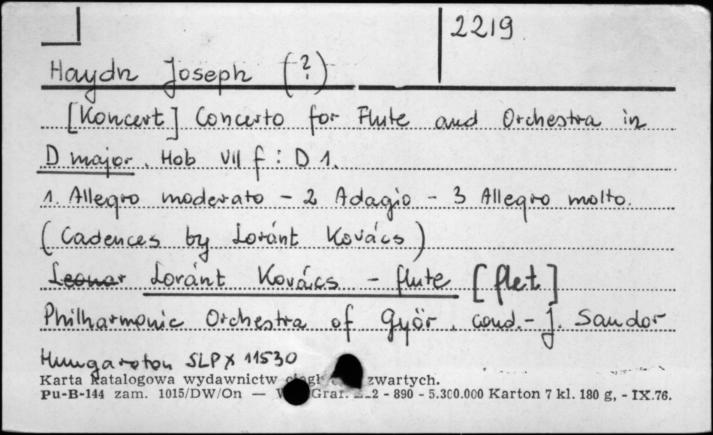 2219
Haydn Joseph (?)
[Koncert] Concerto for Flute and Orchestra in
D major. Hob VII f : D 1.
1. Allegro moderato - 2 Adagio - 3 Allegro molto.
(Cadences by Loránt Kovács)
Leonar Loránt Kovács - flute [flet]
Philharmonic Orchestra of Györ. cond. - J. Sandor
Hungaroton SLPX 11530
Karta katalogowa wydawnictw zwartych.
Pu-B-144 zam. 1015/DW/On — Graf. 2 - 890 - 5.300.000 Karton 7 kl. 180 g, - IX.76.